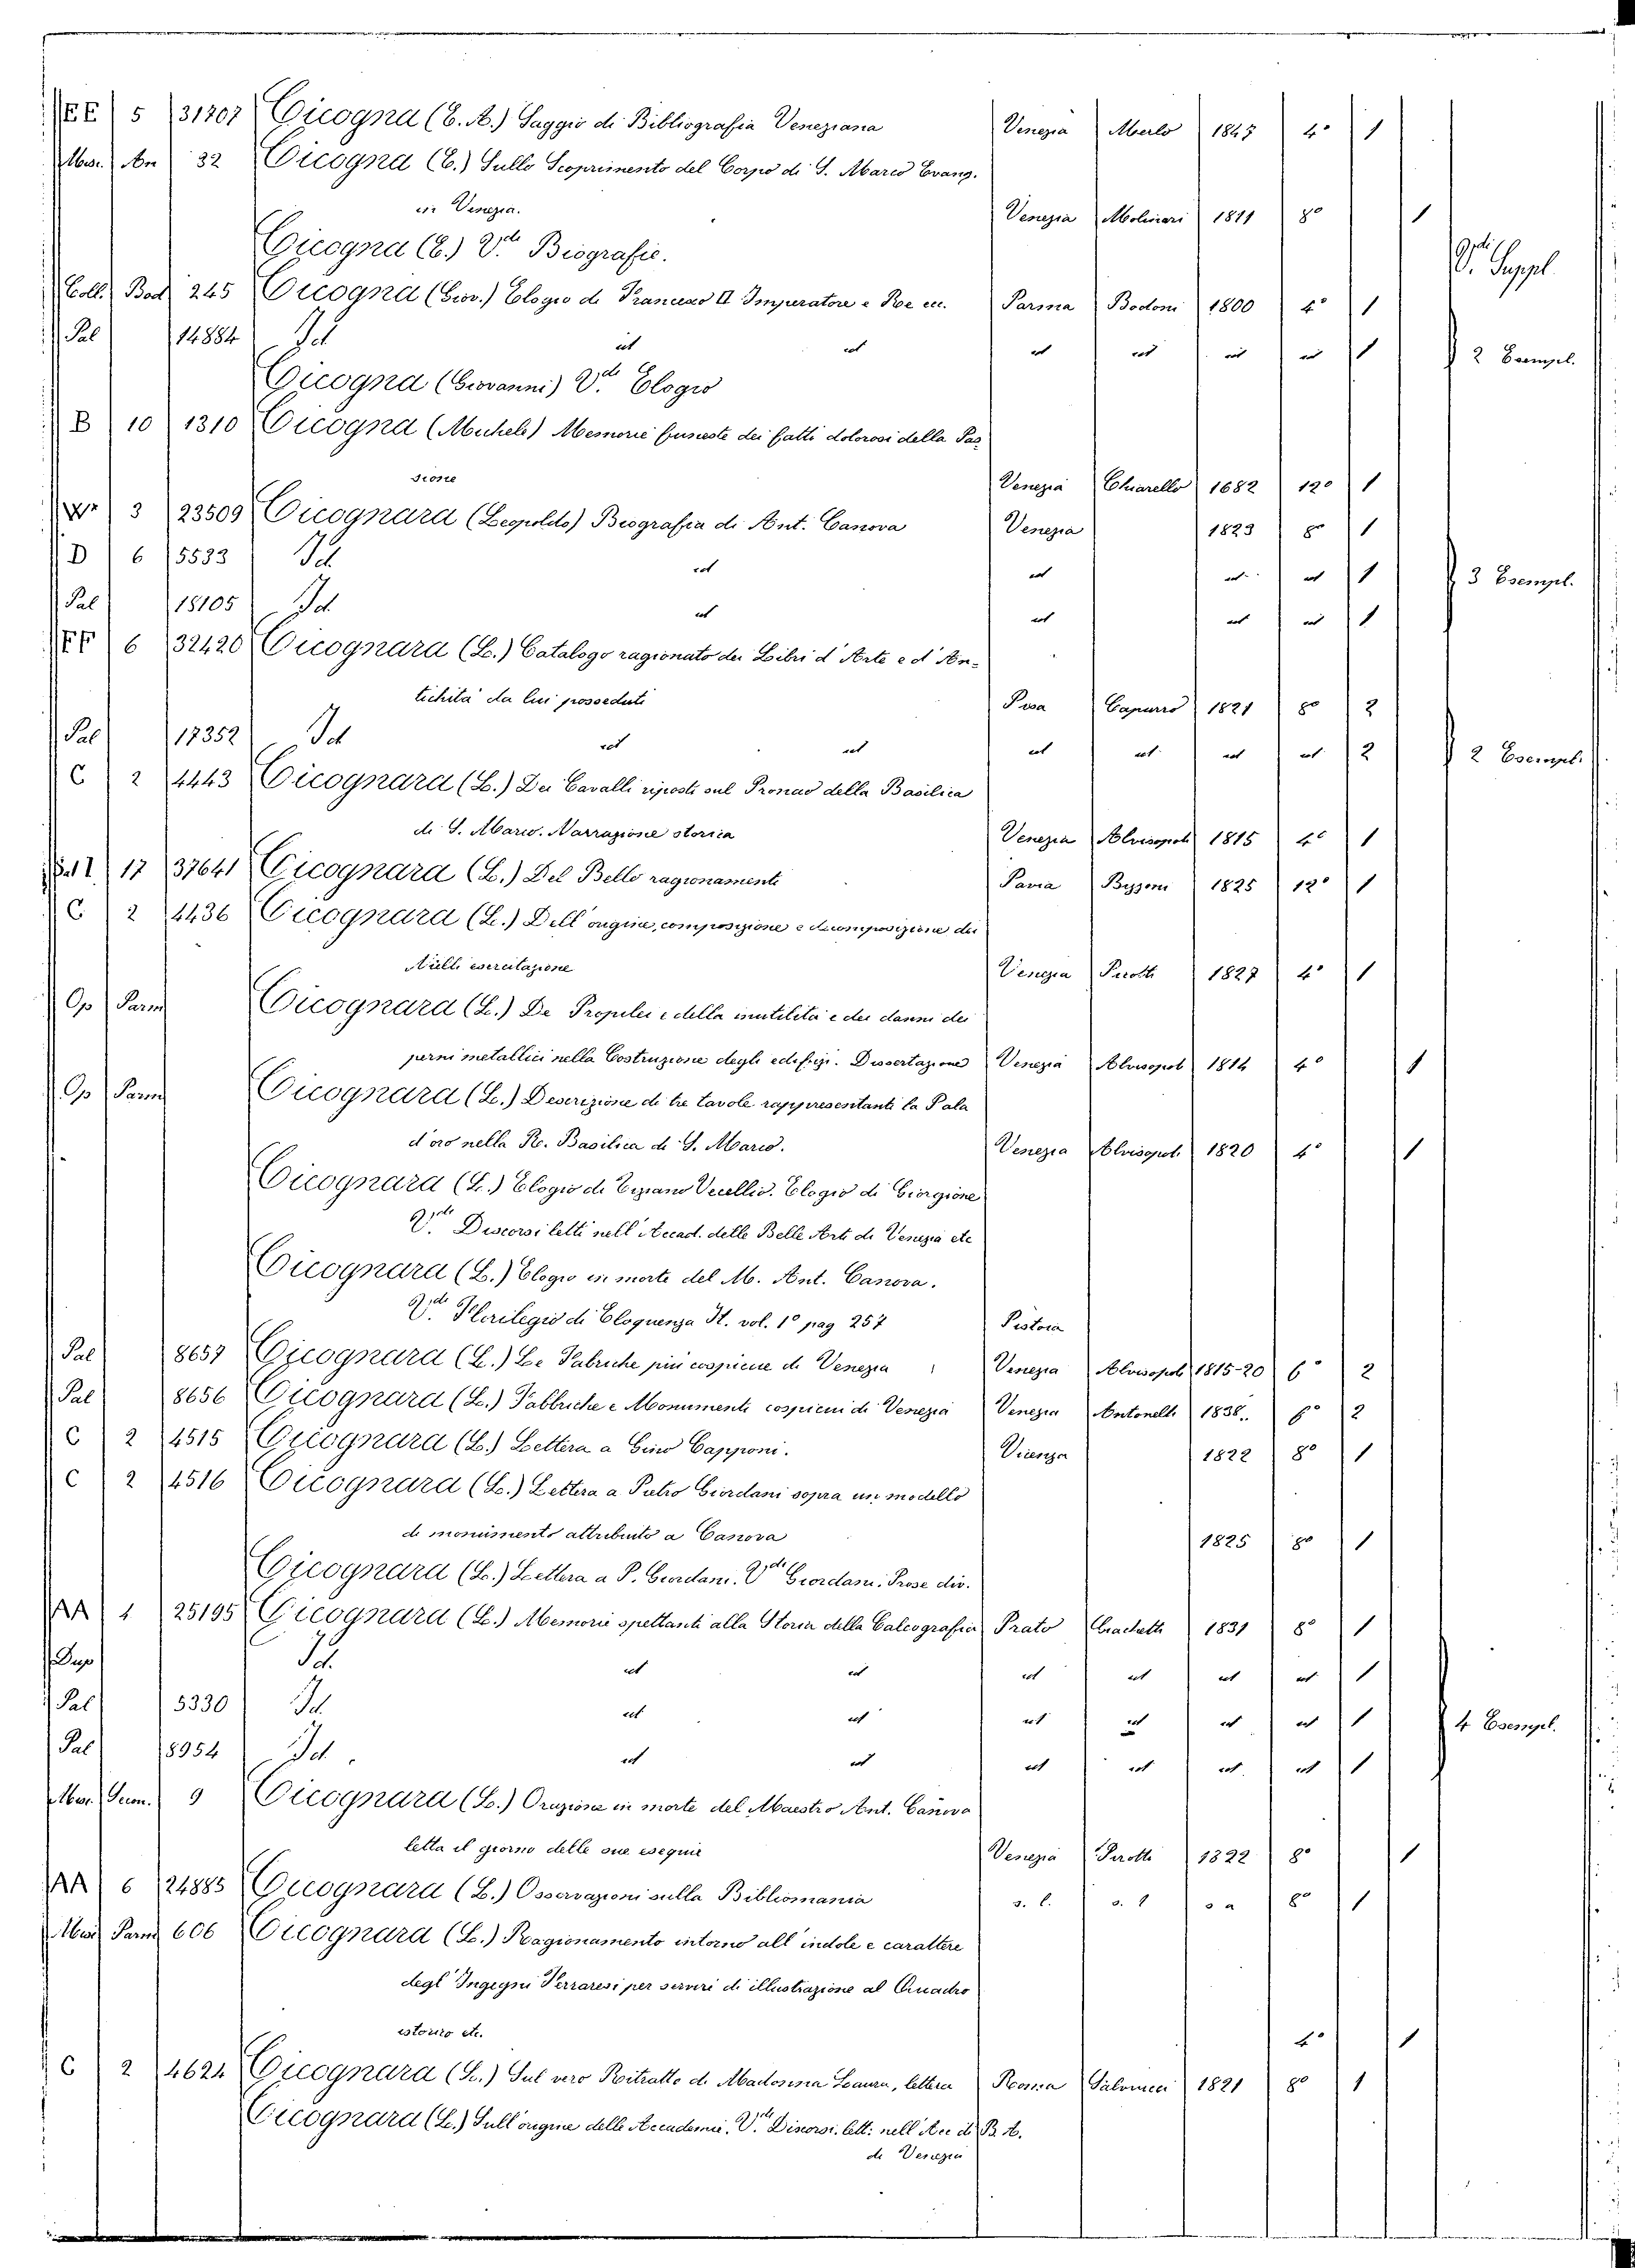 EE 5 31707 Cicogna (E. A.) Saggio di Bibliografia Veneziana Venezia Merlo 1847 4° 1
Misc. An 32 Cicogna (E.) Sullo Scoprimento del Corpo di S. Marco Evang.
in Venezia. Venezia Molinari 1811 8° 1
Cicogna (E.) V.de Biografie. V. Suppl
Coll. Bod 245 Cicogna (Giov.) Elogio di Francesco II Imperatore e Re ecc. Parma Bodoni 1800 4° 1
Pal 14884 Id id id id id id id 1 2 Esempl.
Cicogna (Giovanni) V.de Elogio
B 10 1310 Cicogna (Michele) Memorie funeste dei fatti dolorosi della Pas
sione Venezia Chiarello 1682 12° 1
3 23509 Cicognara (Leopoldo) Biografia di Ant. Canova Venezia 1823 8° 1
D 6 5533 Id id id id id 1 3 Esempl.
Pal 18105 Id id id id id 1
FF 6 32420 Cicognara (L.) Catalogo ragionato dei Libri d'Arte e d'An-
tichità da lui posseduti Pisa Capurro 1821 8° 2
Pal 17352 Id id id id id id id 2 2 Esempl.
C 2 4443 Cicognara (L.) Dei Cavalli riposti sul Pronao della Basilica
di S. Marco. Narrazione storica Venezia Alvisopoli 1815 4° 1
17 37641 Cicognara (L.) Del Bello ragionamenti Pavia Bizzoni 1825 12° 1
C 2 4436 Cicognara (L.) Dell'origine, composizione e decomposizione dei
Nielli esercitazione Venezia Picotti 1827 4° 1
Op Parm Cicognara (L.) De Propilei e della inutilità e dei danni dei
perni metallici nella Costruzione degli edifizi. Dissertazione Venezia Alvisopoli 1814 4° 1
Op Parm Cicognara (L.) Descrizione di tre tavole rappresentanti la Pala
d'oro nella R. Basilica di S. Marco. Venezia Alvisopoli 1820 4° 1
Cicognara (L.) Elogio di Tiziano Vecellio. Elogio di Giorgione
V.de Discorsi letti nell'Accad. delle Belle Arti di Venezia etc
Cicognara (L.) Elogio in morte del M. Ant. Canova.
V.de Florilegio di Eloquenza It. vol. 1° pag 257 Pistoia
Pal 8657 Cicognara (L.) Le Fabriche più cospicue di Venezia Venezia Alvisopoli 1815-20 6° 2
Pal 8656 Cicognara (L.) Fabbriche e Monumenti cospicui di Venezia Venezia Antonelli 1838 6° 2
C 2 4515 Cicognara (L.) Lettera a Gino Capponi. Vicenza 1822 8° 1
C 2 4516 Cicognara (L.) Lettera a Pietro Giordani sopra un modello
di monumento attribuito a Canova 1825 8° 1
Cicognara (L.) Lettera a P. Giordani. V.de Giordani. Prose div.
AA 1 25195 Cicognara (L.) Memorie spettanti alla Storia della Calcografia Prato Giachetti 1831 8° 1
Dup Id. id id id id id id 1
Pal 5330 Id. id id id id id id 1 4 Esempl.
Pal 8954 Id. id id id id id id 1
Misc. 9 Cicognara (L.) Orazione in morte del Maestro Ant. Canova
letta il giorno delle sue esequie Venezia Picotti 1822 8° 1
AA 6 24885 Cicognara (L.) Osservazioni sulla Bibliomania s. l. s. t s a 8° 1
Misc Parm 606 Cicognara (L.) Ragionamento intorno all'indole e carattere
degl'Ingegni Ferraresi per servire di illustrazione al Quadro
istorico etc. 4° 1
C 2 4624 Cicognara (L.) Sul vero Ritratto di Madonna Laura, lettera Roma Salviucci 1821 8° 1
Cicognara (L.) Sull'origine delle Accademie. V.de Discorsi lett: nell'Acc di B. A.
di Venezia